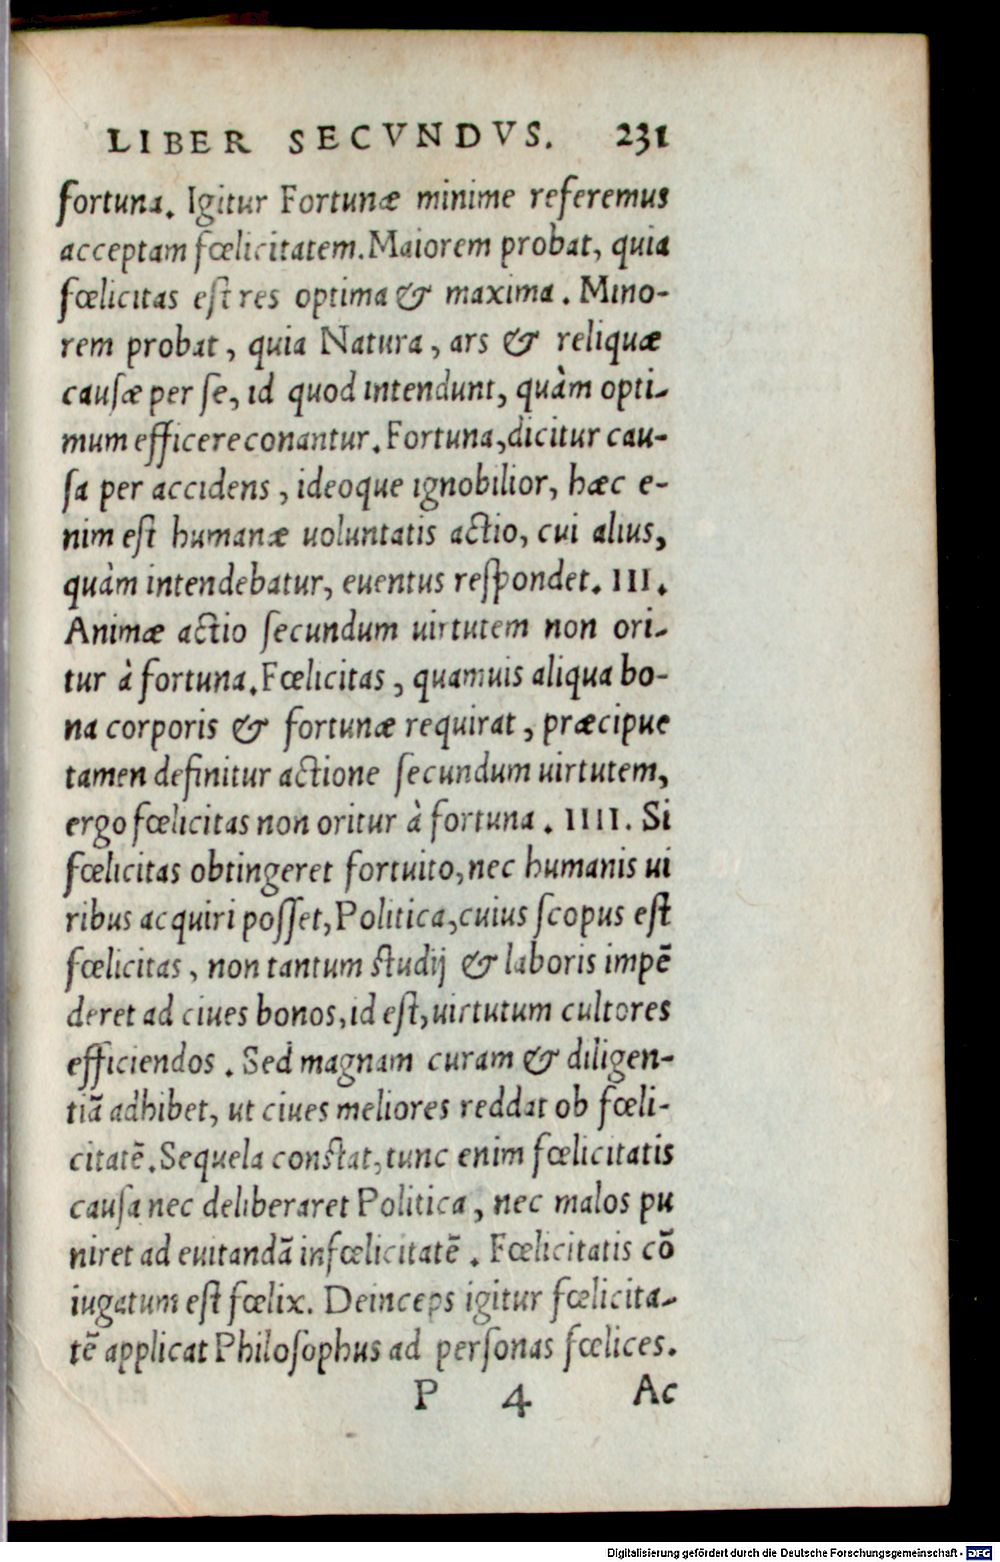 LIBER SECVNDVS. 231
fortuna. Igitur Fortunæ minime referemus
acceptam fœlicitatem. Maiorem probat, quia
fœlicitas est res optima & maxima. Mino-
rem probat, quia Natura, ars & reliquæ
causæ per se, id quod intendunt, quàm opti-
mum efficere conantur. Fortuna, dicitur cau-
sa per accidens, ideoque ignobilior, hæc e-
nim est humanæ uoluntatis actio, cui alius,
quàm intendebatur, euentus respondet. III.
Animæ actio secundum uirtutem non ori-
tur à fortuna. Fœlicitas, quamuis aliqua bo-
na corporis & fortunæ requirat, præcipue
tamen definitur actione secundum uirtutem,
ergo fœlicitas non oritur à fortuna. IIII. Si
fœlicitas obtingeret fortuito, nec humanis ui
ribus acquiri posset, Politica, cuius scopus est
fœlicitas, non tantum studij & laboris impē
deret ad ciues bonos, id est, uirtutum cultores
efficiendos. Sed magnam curam & diligen-
tiā adhibet, ut ciues meliores reddat ob fœli-
citatē. Sequela constat, tunc enim fœlicitatis
causa nec deliberaret Politica, nec malos pu
niret ad euitandā infœlicitatē. Fœlicitatis cō
iugatum est fœlix. Deinceps igitur fœlicita-
tē applicat Philosophus ad personas fœlices.
P 4 Ac
Digitalisierung gefördert durch die Deutsche Forschungsgemeinschaft - DFG